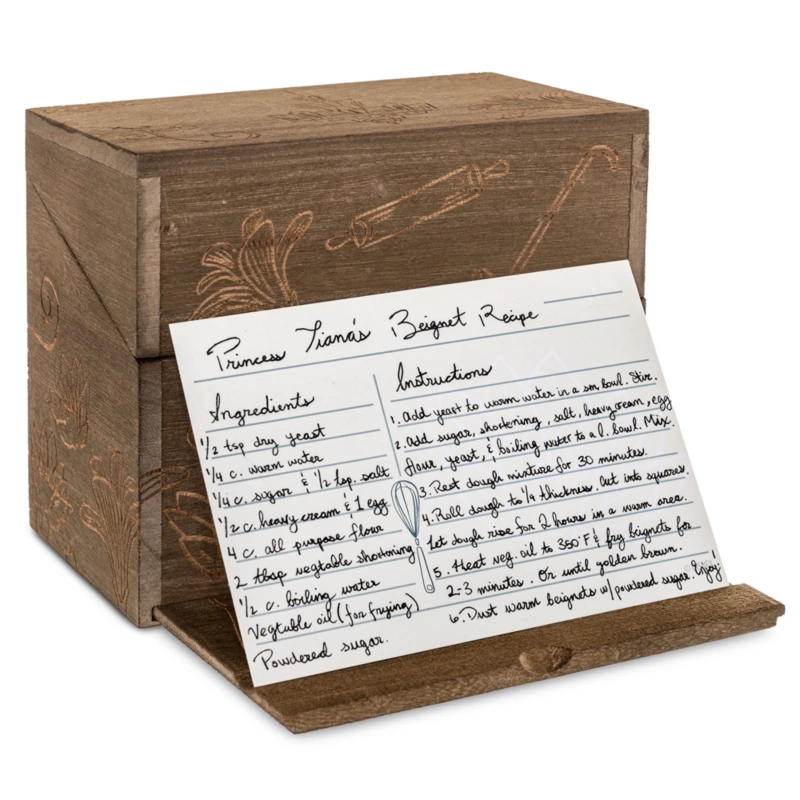 Princess Tiana's Beignet Recipe
Ingredients
1/2 tsp dry yeast
1/4 c. warm water
1/4 c. sugar & 1/2 tsp. salt
1/2 c. heavy cream & 1 egg
4 c. all purpose flour
2 tbsp vegtable shortening
1/2 c. boiling water
Vegtable oil (for frying)
Powdered sugar.
Instructions
1. Add yeast to warm water in a sm bowl. Stir.
2. Add sugar, shortening, salt, heavy cream, egg
flour, yeast, & boiling water to a l. bowl. Mix.
3. Rest dough mixture for 30 minutes.
4. Roll dough to 1/4 thickness. Cut into squares.
Let dough rise for 2 hours in a warm area.
5. Heat veg. oil to 350°F & fry beignets for
2-3 minutes. Or until golden brown.
6. Dust warm beignets w/ powdered sugar. Enjoy!